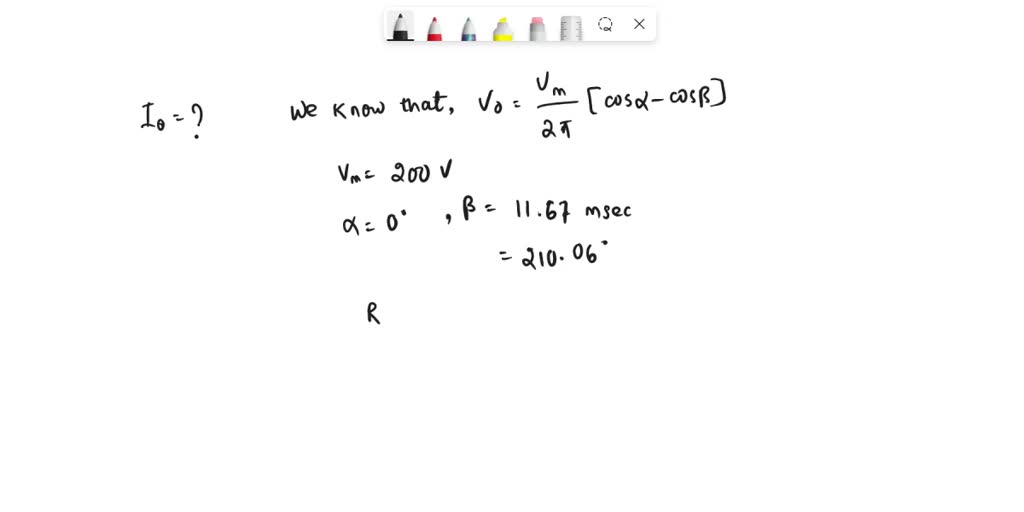 I₀ = ?
We know that, V₀ = Vm/2π [cosα - cosβ]
Vm = 200 V
α = 0° , β = 11.67 msec
= 210.06°
R